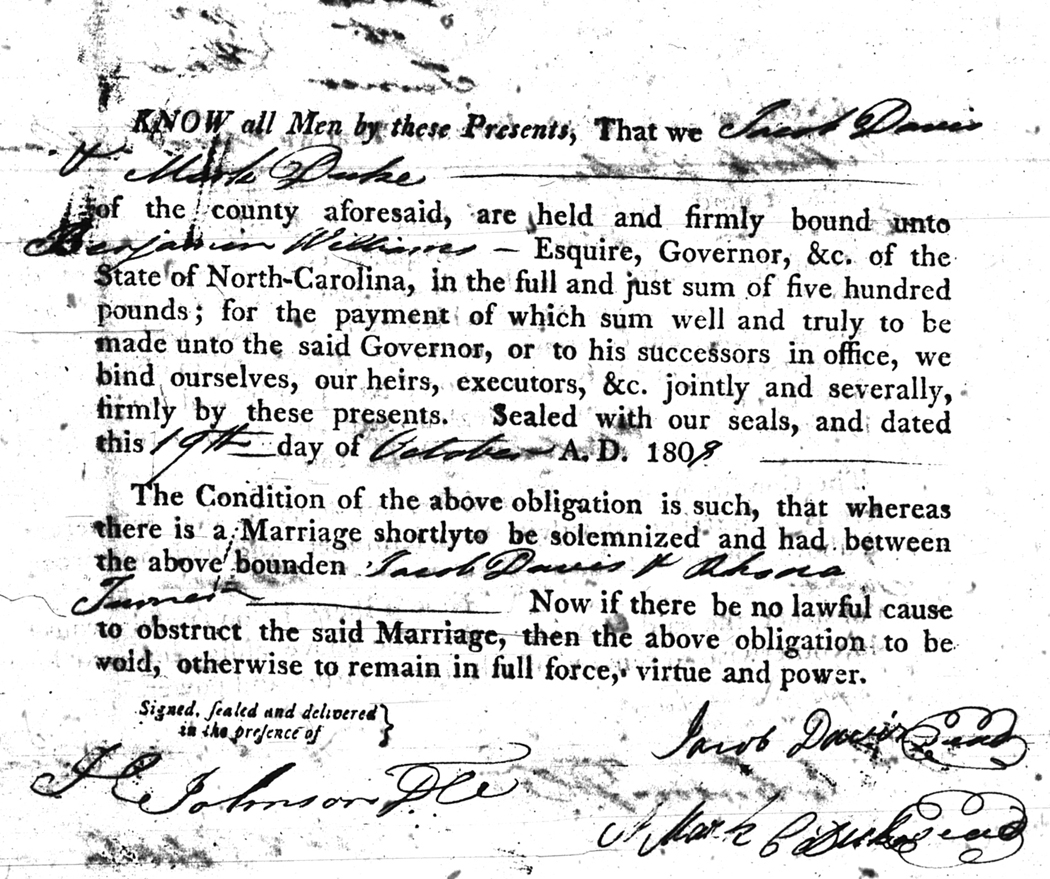 KNOW all Men by these Presents, That we Jacob Davis
& Mark Duke
of the county aforesaid, are held and firmly bound unto
Benjamin Williams – Esquire, Governor, &c. of the
State of North-Carolina, in the full and just sum of five hundred
pounds; for the payment of which sum well and truly to be
made unto the said Governor, or to his successors in office, we
bind ourselves, our heirs, executors, &c. jointly and severally,
firmly by these presents. Sealed with our seals, and dated
this 19th day of October A. D. 1808
The Condition of the above obligation is such, that whereas
there is a Marriage shortlyto be solemnized and had between
the above bounden Jacob Davis & Rhoda
Turner Now if there be no lawful cause
to obstruct the said Marriage, then the above obligation to be
void, otherwise to remain in full force, virtue and power.
Signed, sealed and delivered }
in the presence of
Jacob Davis Seal
Johnson
Mark Duke Seal